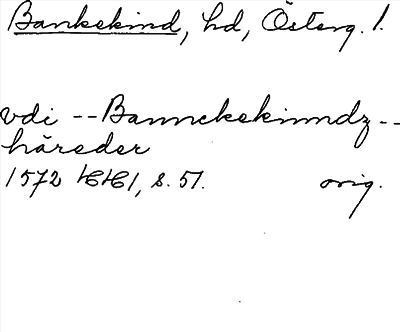 Bankekind, hd, Österg. l.
vdi -- Bannckekinndz --
häreder
1572 HH1, s. 51. orig.